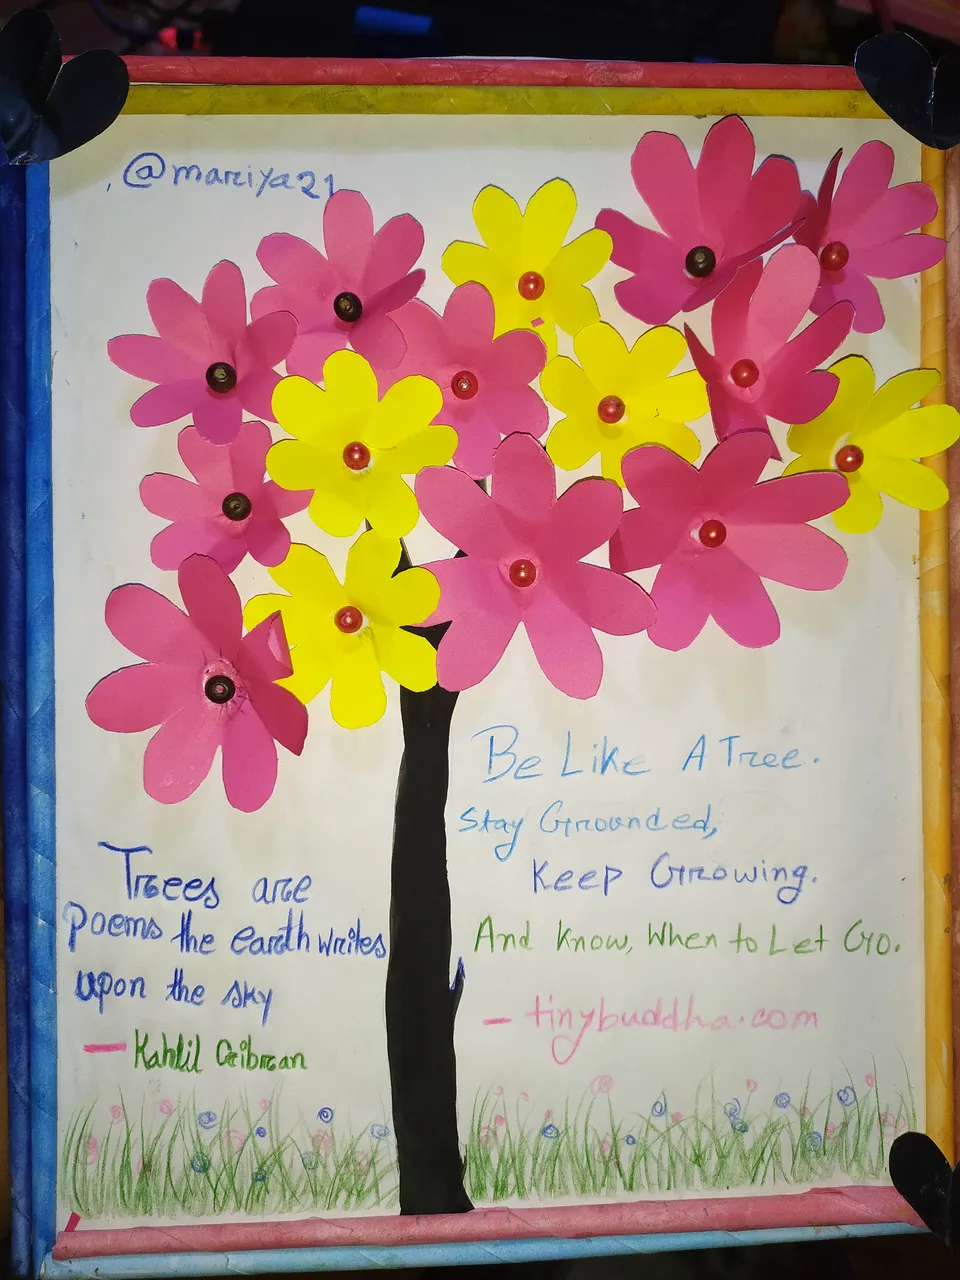 @mariya21
Be Like A Tree.
Stay Grounded,
Keep Growing.
And Know, When to Let Go.
– tinybuddha.com
Trees are
poems the earth writes
upon the sky
– Kahlil Gibran